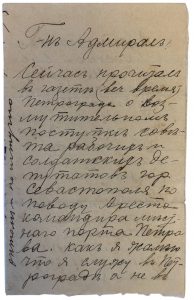 Г-нъ Адмиралъ
Сейчас прочиталъ
въ газетѣ Веч Время
Петрограда о воз-
мутительном
поступкѣ совѣ
та рабочих и
солдатских де-
путатов гор
Севастополя по
поводу ареста
командира мѣст-
наго порта Петро
ва. какъ я
что я служу въ Пет
роградѣ а не в